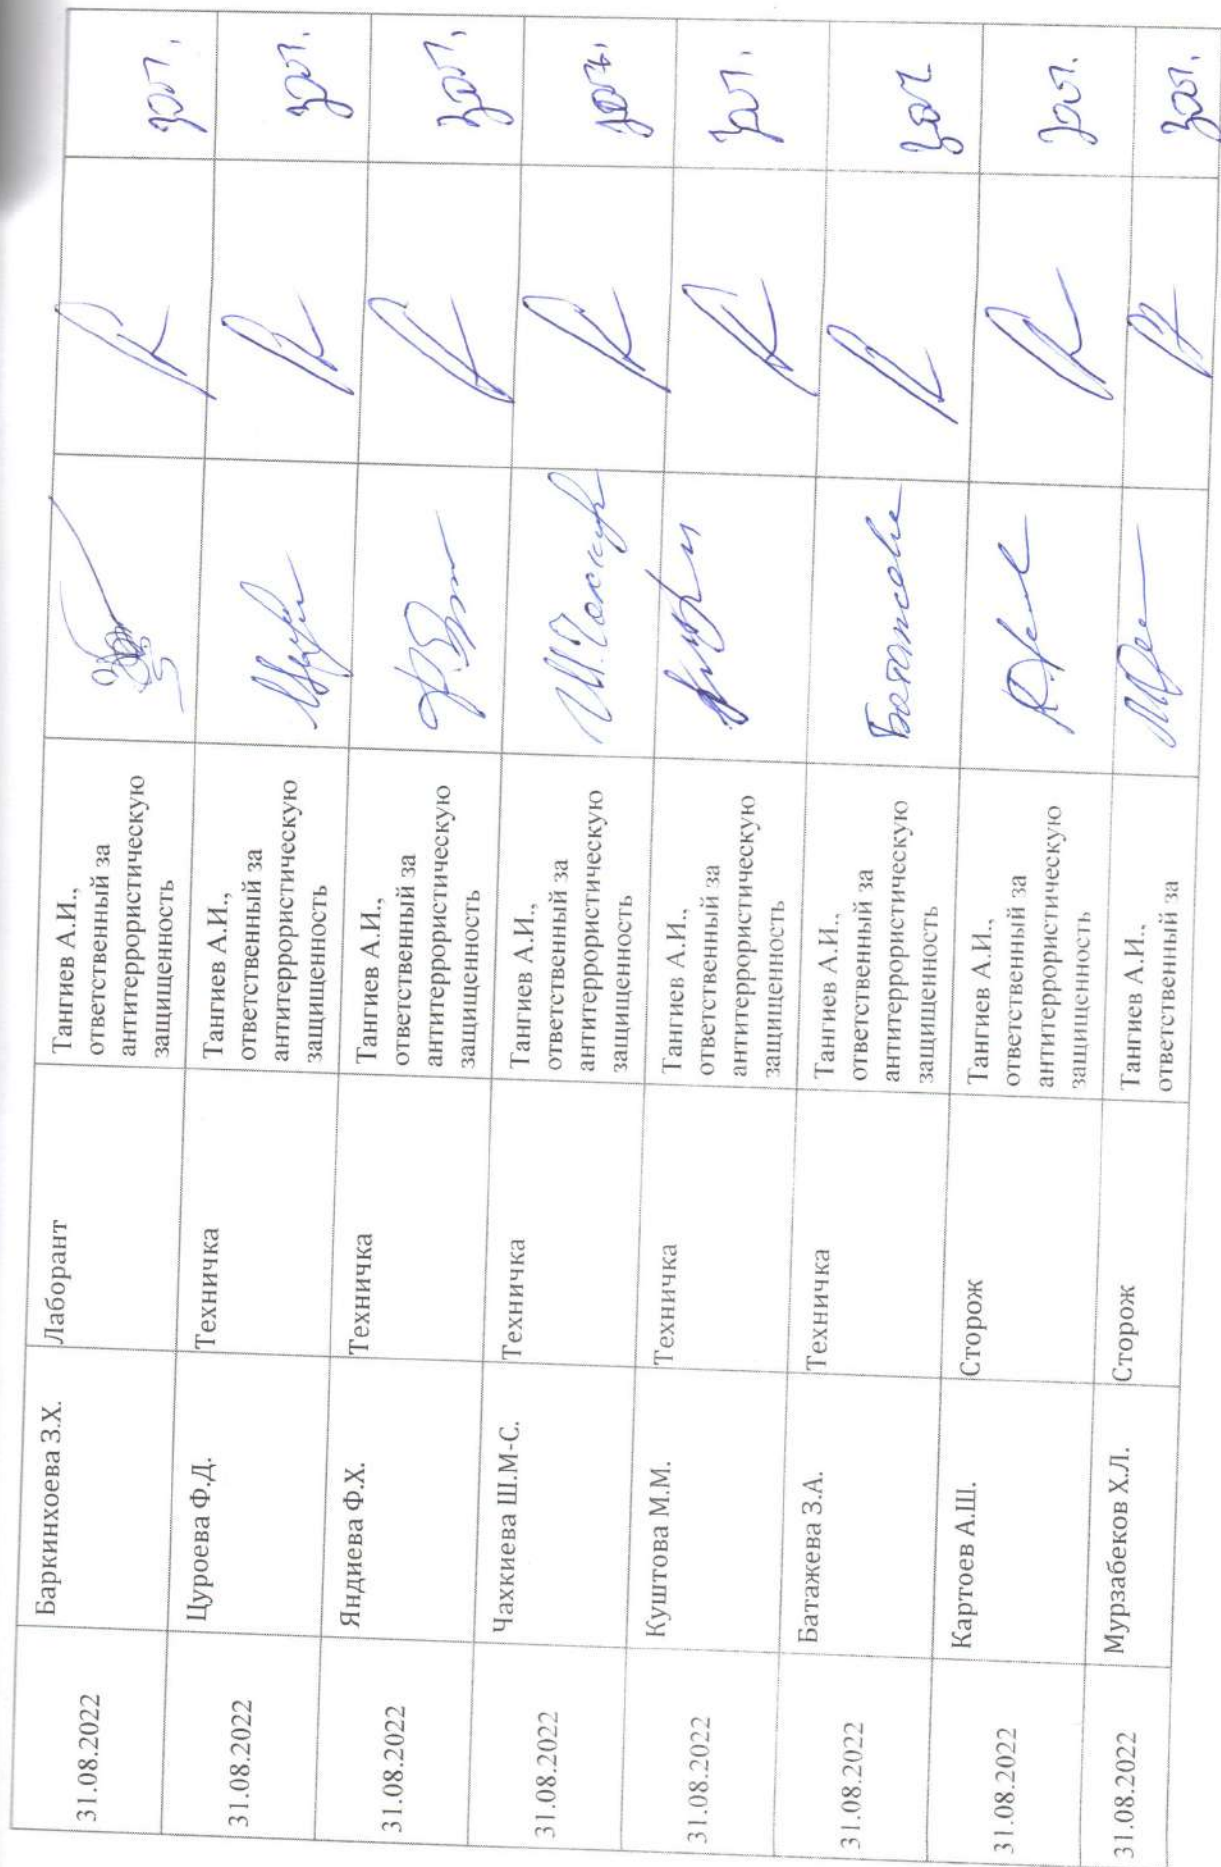 31.08.2022
Баркинхоева З.Х.
Лаборант
Тангиев А.И.,
ответственный за
антитеррористическую
защищенность
31.08.2022
Цуроева Ф.Д.
Техничка
Тангиев А.И.,
ответственный за
антитеррористическую
защищенность
31.08.2022
Яндиева Ф.Х.
Техничка
Тангиев А.И.,
ответственный за
антитеррористическую
защищенность
31.08.2022
Чахкиева Ш.М-С.
Техничка
Тангиев А.И.,
ответственный за
антитеррористическую
защищенность
31.08.2022
Куштова М.М.
Техничка
Тангиев А.И.,
ответственный за
антитеррористическую
защищенность
31.08.2022
Батажева З.А.
Техничка
Тангиев А.И.,
ответственный за
антитеррористическую
защищенность
31.08.2022
Картоев А.Ш.
Сторож
Тангиев А.И.,
ответственный за
антитеррористическую
защищенность
31.08.2022
Мурзабеков Х.Л.
Сторож
Тангиев А.И.,
ответственный за